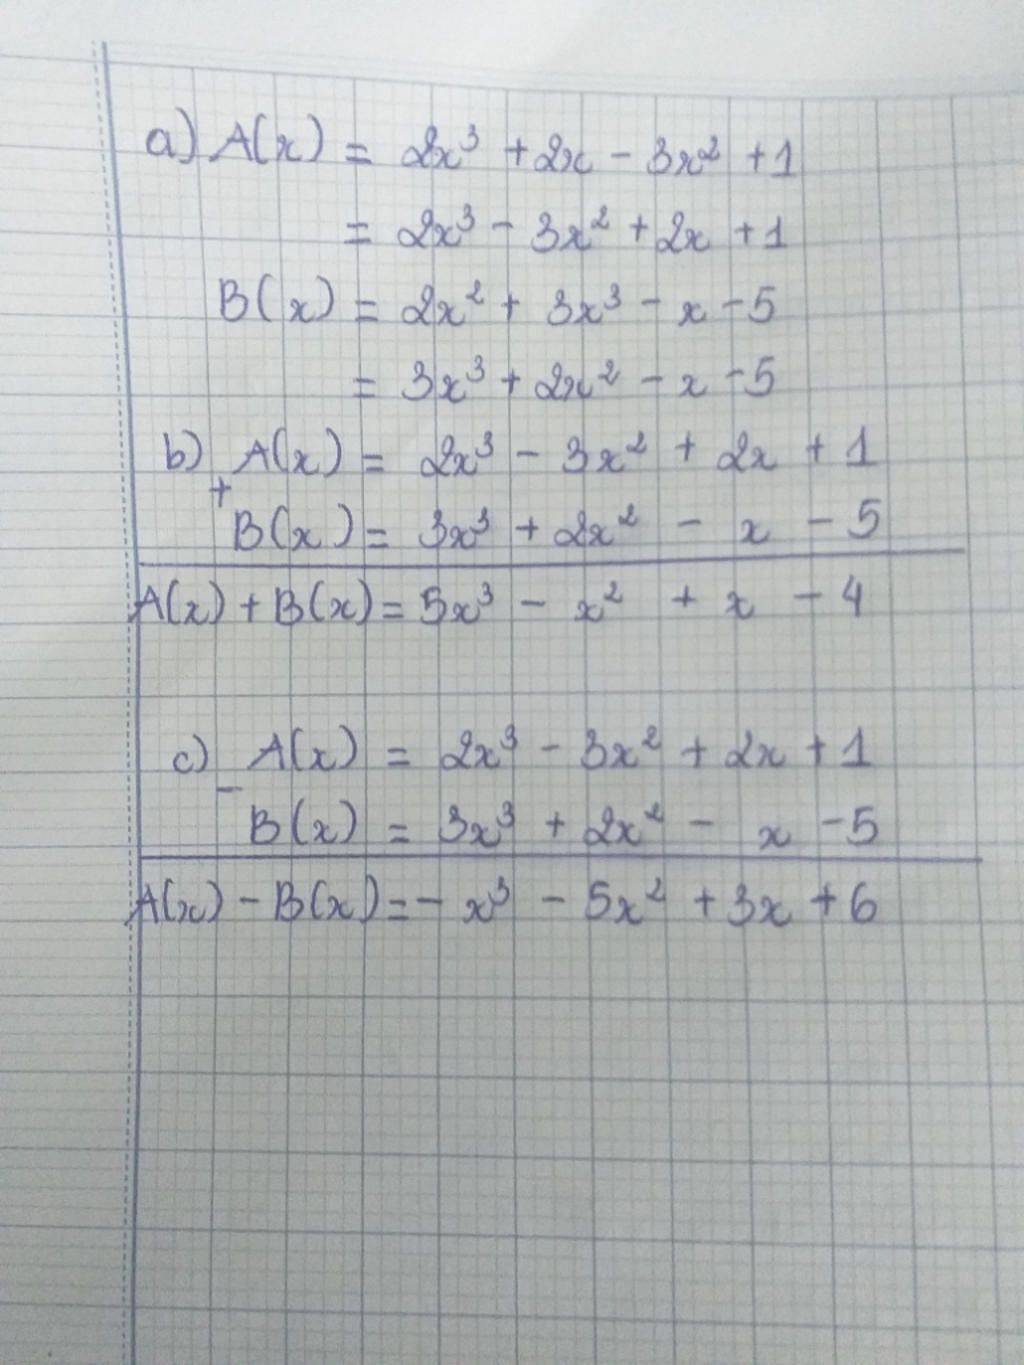 a) A(x) = 2x³ + 2x - 3x² + 1
= 2x³ - 3x² + 2x + 1
B(x) = 2x² + 3x³ - x - 5
= 3x³ + 2x² - x - 5
b) A(x) = 2x³ - 3x² + 2x + 1
+
B(x) = 3x³ + 2x² - x - 5
A(x) + B(x) = 5x³ - x² + x - 4
c) A(x) = 2x³ - 3x² + 2x + 1
-
B(x) = 3x³ + 2x² - x - 5
A(x) - B(x) = - x³ - 5x² + 3x + 6